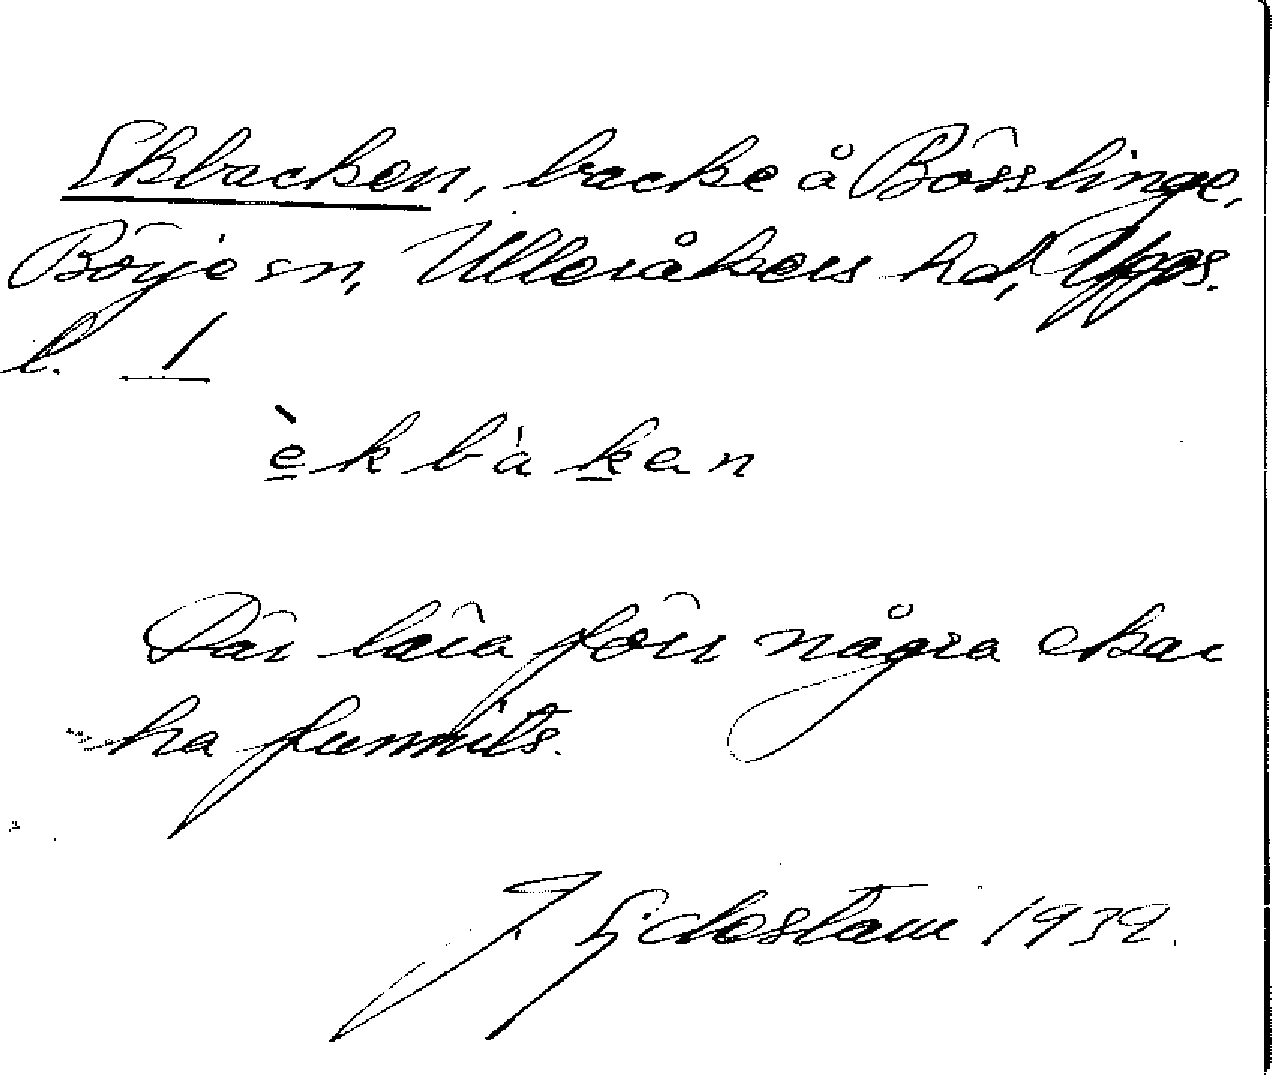 Ekbacken, backe å Bösslinge,
Börje sn, Ulleråkers hd, Upps.
l. 1
èkbàkan
Där lära förr några ekar
ha funnits.
J. Gidestam 1932.